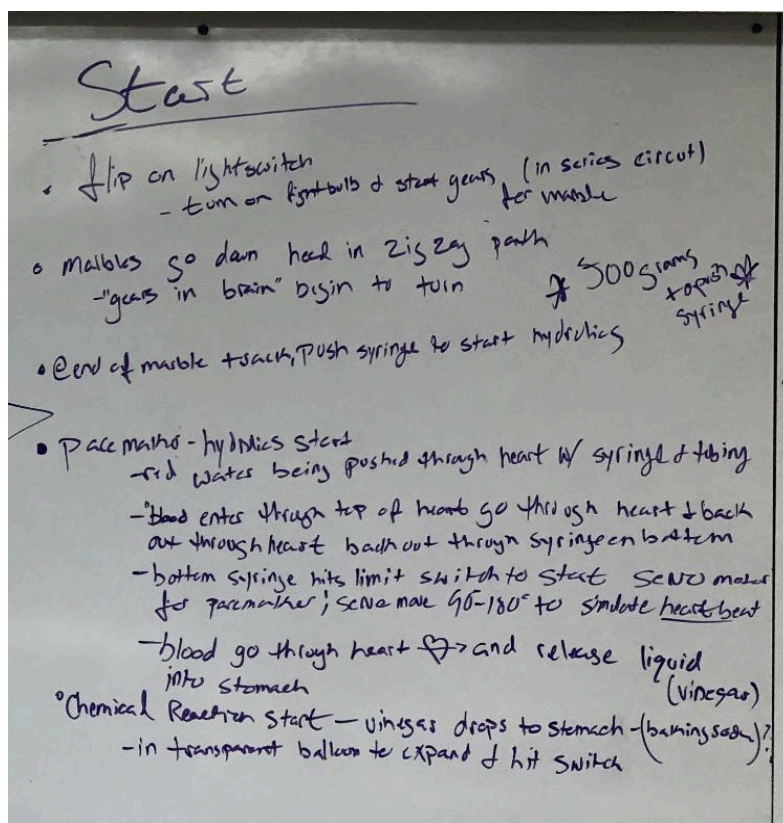 Start
• flip on lightswitch
- turn on lightbulb & start gears (in series circut)
for marble
• malbles go down head in zigzag path
-"gears in brain" bigin to turn
* 500 grams
to push *
syringe
• @end of marble track, push syringe to start hydrolics
• pacemaker - hydrolics start
-red water being pushed through heart w/ syringe & tubing
-"blood enter through top of heart go through heart & back
out through heart back out through syringe on bottom
-bottom syringe hits limit switch to start servo motor
for pacemaker; servo move 90-180° to simulate heart beat
-blood go through heart ♡> and release liquid
into stomach (vinegar)
• Chemical Reaction start - vinegar drops to stomach - (baking soda)?
-in transparent balloon to expand & hit switch